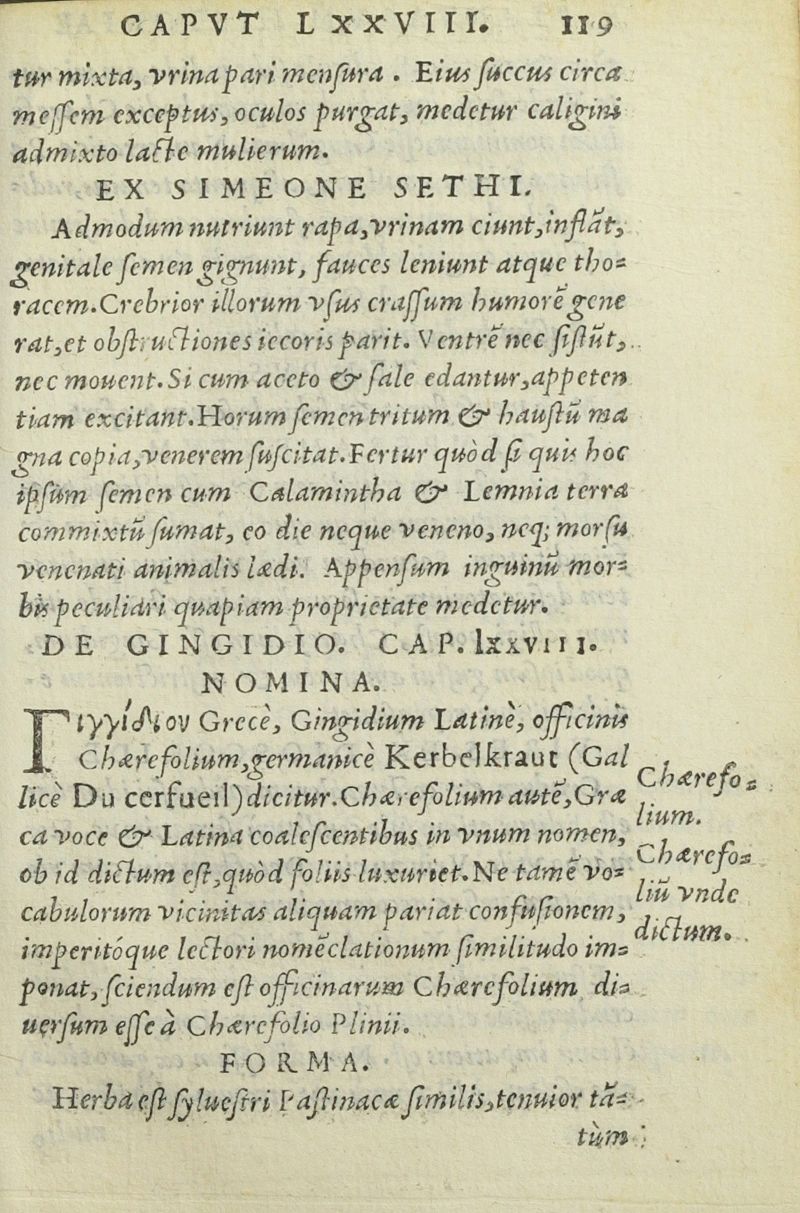 CAPVT LXXVIII. 119
tur mixta, vrina pari menſura. Eius ſuccus circa
meſſem exceptus, oculos purgat, medetur caligini
admixto lacte mulierum.
EX SIMEONE SETHI.
Admodum nutriunt rapa, vrinam ciunt, inflāt,
genitale ſemen gignunt, fauces leniunt atque tho-
racem. Crebrior illorum vſus craſſum humorē gene
rat, et obſtructiones iecoris parit. Ventrē nec ſiſtūt,
nec mouent. Si cum aceto & ſale edantur, appeten
tiam excitant. Horum ſemen tritum & hauſtū ma
gna copia, venerem ſuſcitat. Fertur quòd ſi quis hoc
ipſum ſemen cum Calamintha & Lemnia terra
commixtū ſumat, eo die neque veneno, neq; morſu
venenati animalis lædi. Appenſum inguinū mor-
bis peculiari quapiam proprietate medetur.
DE GINGIDIO. CAP. lxxviii.
NOMINA.
Γιγγίδιον Grecè, Gingidium Latinè, officinis
Chærefolium, germanicè Kerbelkraut (Gal
licè Du cerfueil) dicitur. Chærefolium autē, Græ
ca voce & Latina coaleſcentibus in vnum nomen,
ob id dictum eſt, quòd foliis luxuriet. Ne tamē vo-
cabulorum vicinitas aliquam pariat confuſionem,
imperitóque lectori nomēclationum ſimilitudo im-
ponat, ſciendum eſt officinarum Chærefolium di-
uerſum eſſe à Chærefolio Plinii.
Chærefo-
lium.
Chærefo-
liū vnde
dictum.
FORMA.
Herba eſt ſylueſtri Paſtinacæ ſimilis, tenuior tā-
tùm